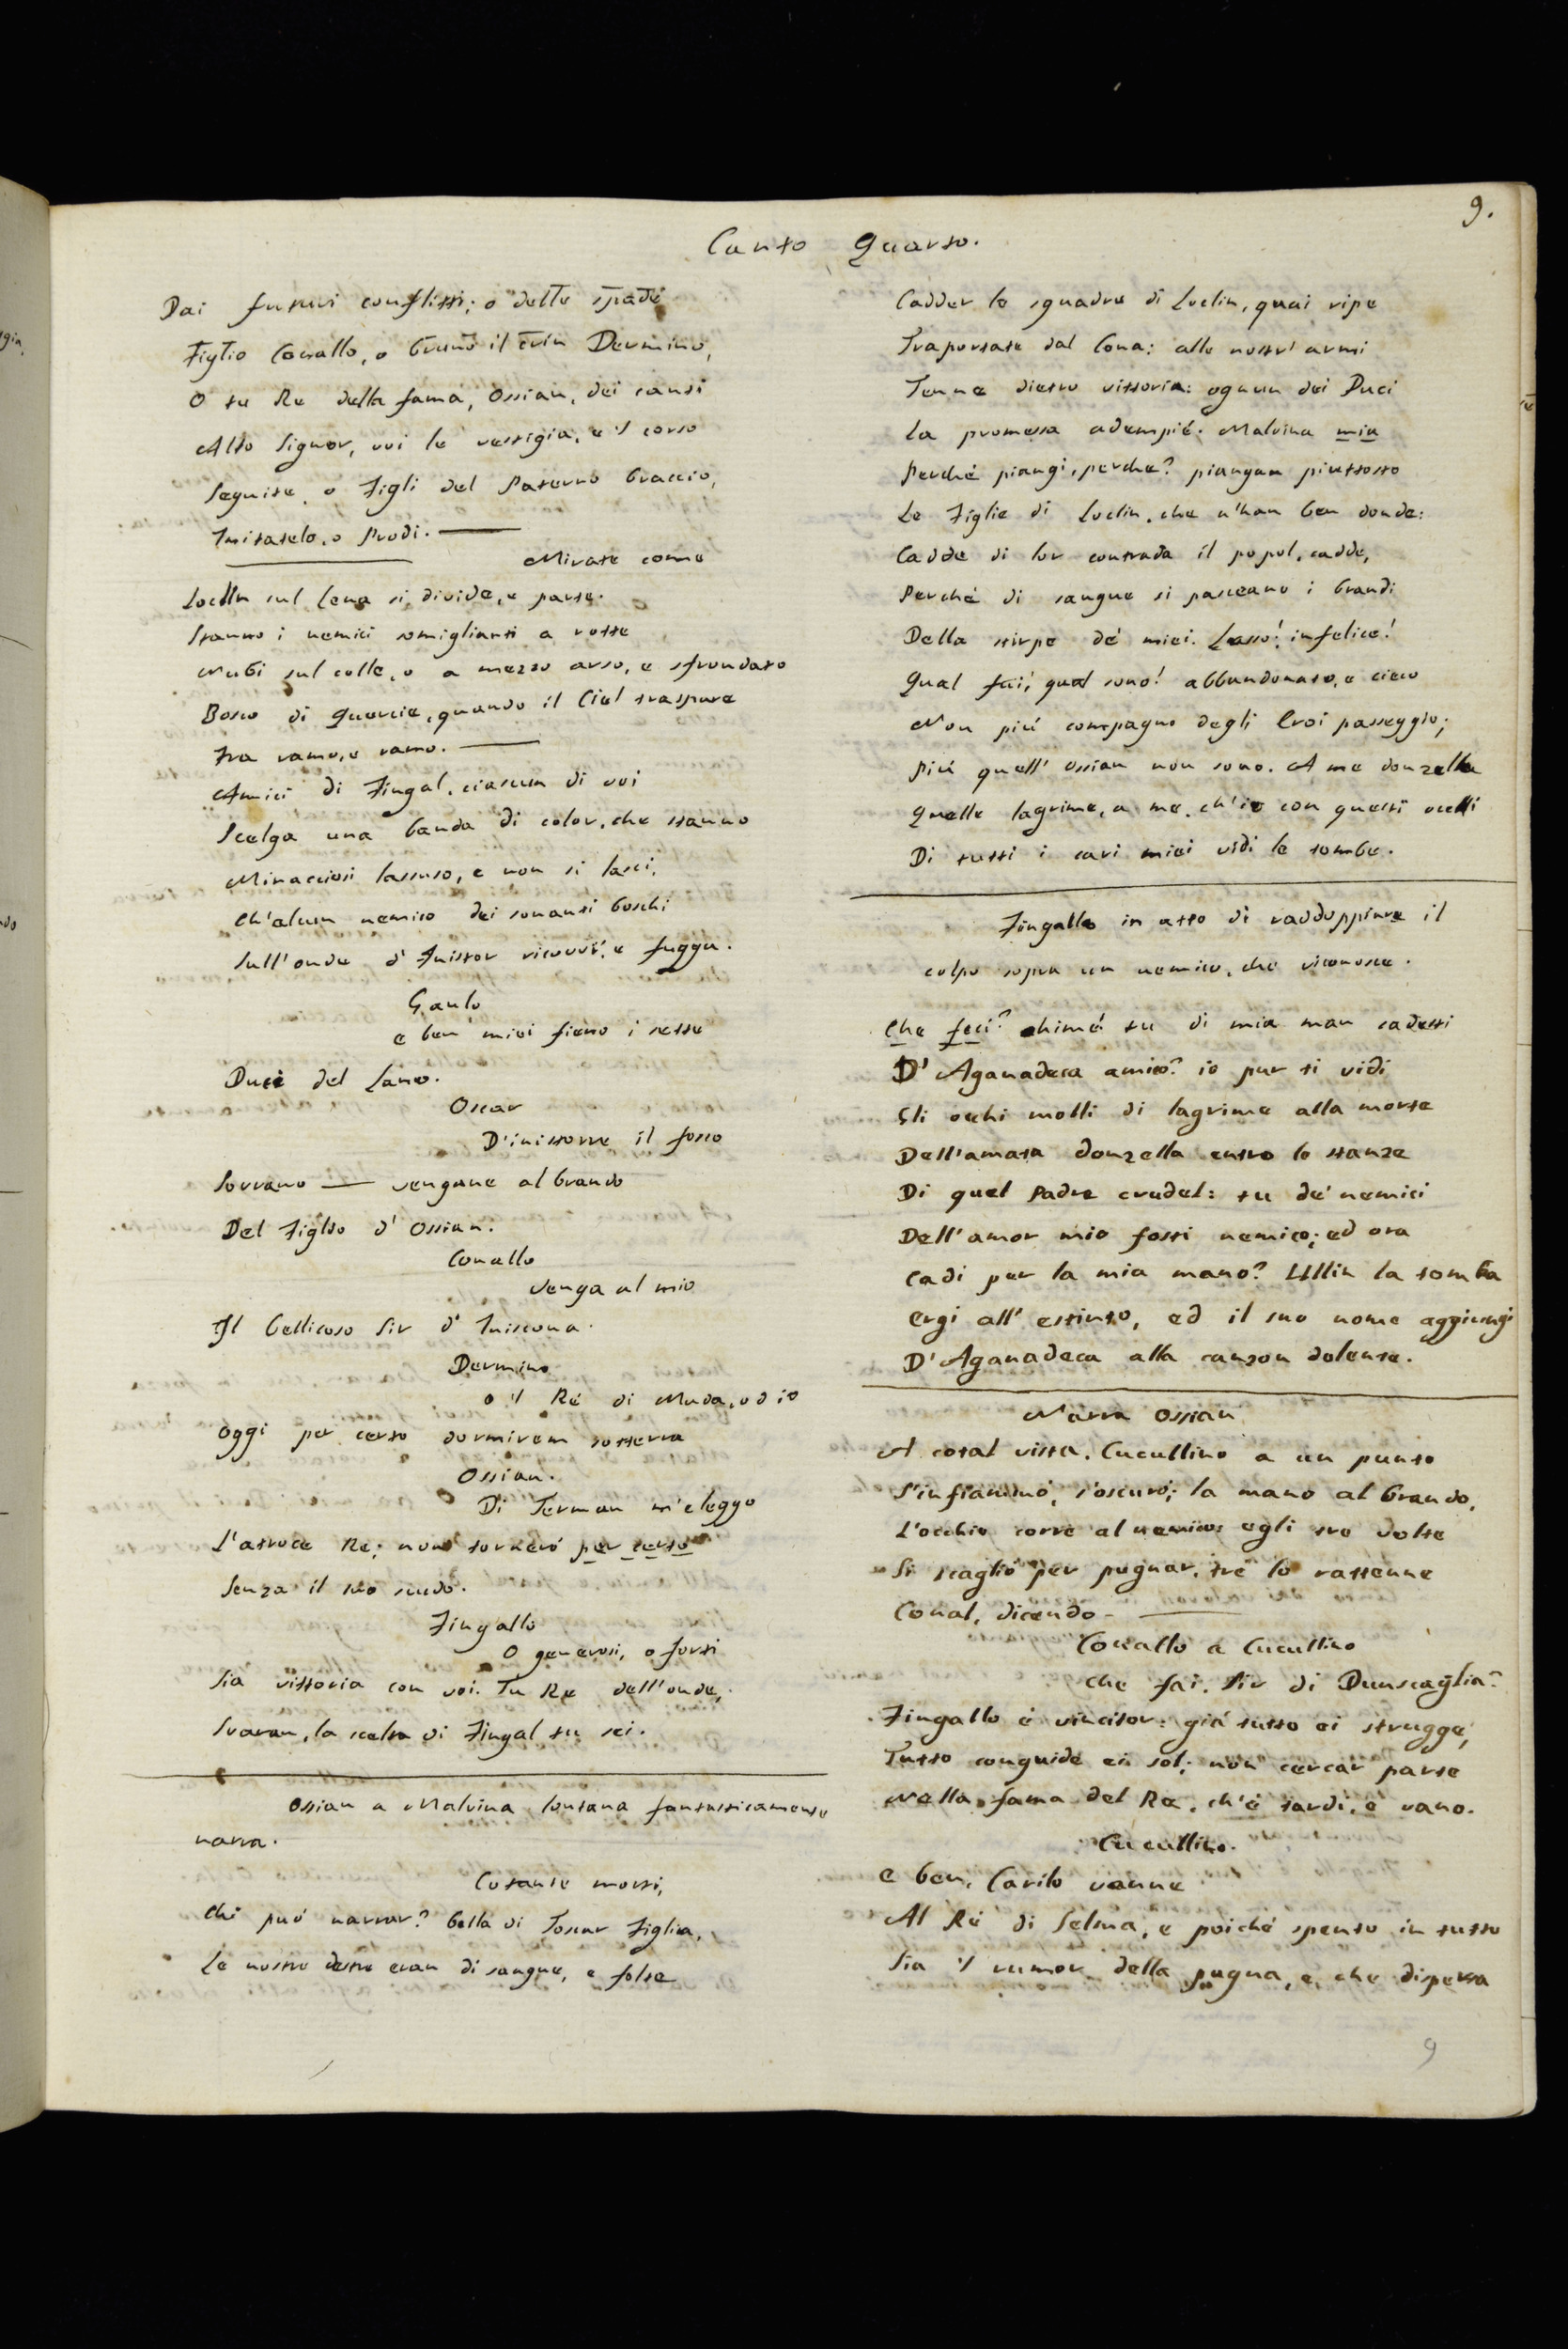 9.
Canto Quarto.
Dai futuri conflitti; o delle spade
Figlio Conallo, o bruno il crin Dermino,
O tu Re della fama, Ossian, dei canti
Alto Signor, voi le vestigia, e 'l corso
Seguite, o Figli del Paterno braccio,
Imitatelo, o Prodi. —
Mirate come
Loclin sul Lena si divide, e parte.
Stanno i nemici somiglianti a rotte
Nubi sul colle, o a mezzo arso, e sfrondato
Bosco di Quercie, quando il Ciel traspare
tra ramo, e ramo. —
Amici di Fingal, ciascun di voi
Scelga una banda di color, che stanno
Minacciosi lassuso, e non si lasci,
Ch'alcun nemico dei sonanti boschi
Sull'onde d'Inistor ricovri, e fugga.
Gaulo
e ben miei fieno i sette
Duci del Lano.
Oscar
D'inistorre il fosco
Sovrano — vengane al brando
Del Figlio d'Ossian.
Conallo
Venga al mio
Il bellicoso Sir d'Iniscona.
Dermino
o 'l Ré di Muda, od io
Oggi per certo dormirem sotterra
Ossian.
Di Terman m'eleggo
L'atroce Re; non torneró per certo
Senza il suo scudo.
Fingallo
O generosi, o forti
Sia vittoria con voi. Tu Re dell'onde,
Svaran, la scelta di Fingal tu sei.
Ossian a Malvina lontana fantasticamente
narra.
Cotante morti,
Chi puó narrar? bella di Toscar Figlia,
Le nostre destre eran di sangue, e folte
Cadder le squadre di Loclin, quai ripe
Traportate dal Cona: alle nostr'armi
Tenne dietro vittoria: ognun dei Duci
La promessa adempié. Malvina mia
Perché piangi, perche? piangan piuttosto
Le Figlie di Loclin, che n'han ben donde:
Cadde di lor contrada il popol, cadde,
Perché di sangue si pasceano i brandi
Della stirpe dé miei. Lasso! infelice!
Qual fui! qual sono! abbandonato, e cieco
Non piú compagno degli Eroi passeggio;
piú quell'Ossian non sono. A me donzella
Quelle lagrime, a me, ch'io con questi occhi
Di tutti i cari miei vidi le tombe.
Fingallo in atto di raddoppiare il
colpo sopra un nemico, che riconosce.
Che feci? ohimé! tu di mia man cadesti
D'Aganadeca amico? io pur ti vidi
Gli occhi molli di lagrime alla morte
Dell'amata donzella entro le stanze
Di quel Padre crudel: tu dé nemici
Dell'amor mio fosti nemico; ed ora
Cadi per la mia mano? Ullin la tomba
ergi all'estinto, ed il suo nome aggiungi
D'Aganadeca alla canzon dolente.
Narra Ossian
A cotal vista, Cucullino a un punto
S'infiammó, s'oscuró; la mano al brando,
L'occhio corre al nemico: egli tre volte
Si scaglió per pugnar, tre lo rattenne
Conal, dicendo —
Conallo a Cucullino
che fai, Sir di Dunscaglia?
Fingallo é vincitor: giá tutto ei strugge,
Tutto conquide ei sol; non cercar parte
Nella fama del Re, ch'é tardi, é vano.
Cucullino.
e ben, Carilo vanne
Al Ré di Selma, e poiché spento in tutto
Sia 'l rumor della pugna, e che dispersa
9